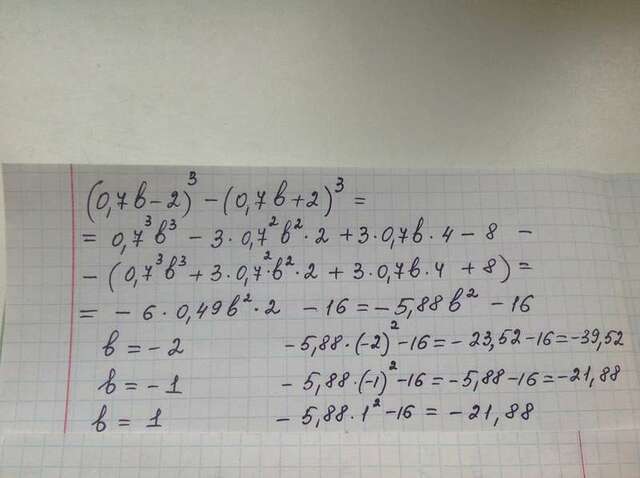 (0,7в-2)³ - (0,7в+2)³ =
= 0,7³в³ - 3·0,7²в²·2 + 3·0,7в·4 - 8 -
- (0,7³в³ + 3·0,7²·в²·2 + 3·0,7в·4 + 8) =
= - 6·0,49в²·2 - 16 = - 5,88в² - 16
в = - 2 - 5,88·(-2)² - 16 = - 23,52 - 16 = -39,52
в = - 1 - 5,88·(-1)² - 16 = - 5,88 - 16 = -21,88
в = 1 - 5,88·1² - 16 = - 21,88